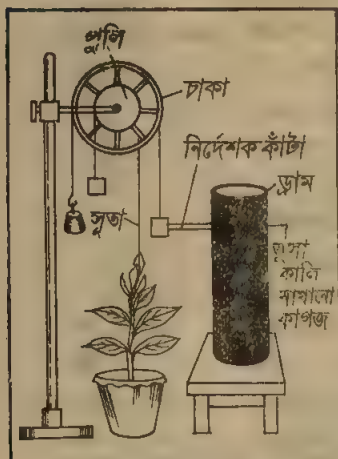 পুলি
চাকা
নির্দেশক কাঁটা
ড্রাম
সূতা
ভুসা
কালি
মাখানো
কাগজ